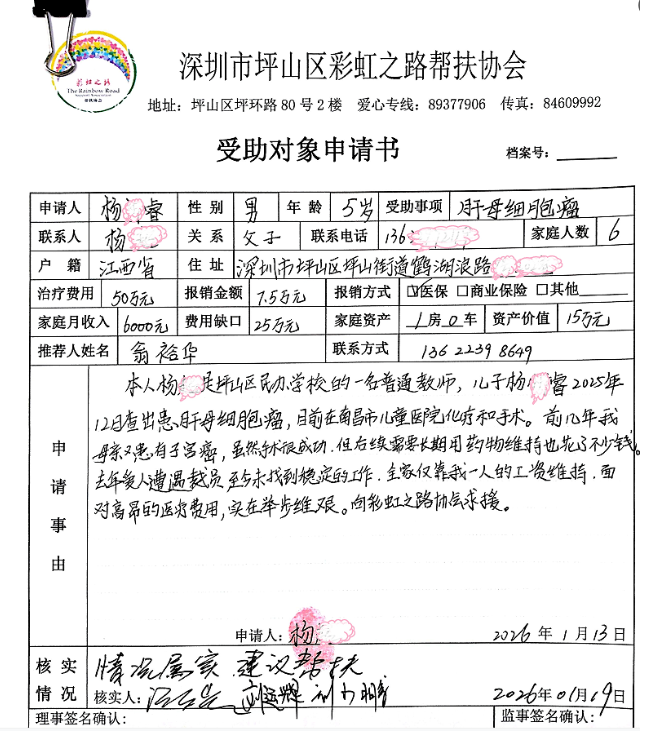 彩虹之路
The Rainbow Road
帮扶协会
深圳市坪山区彩虹之路帮扶协会
地址：坪山区坪环路80号2楼 爱心专线：89377906 传真：84609992
受助对象申请书
档案号：
申请人 杨 睿 性别 男 年龄 5岁 受助事项 肝母细胞瘤
联系人 杨 关系 父子 联系电话 136 家庭人数 6
户籍 江西省 住址 深圳市坪山区坪山街道鹤湖浪路
治疗费用 50万元 报销金额 7.5万元 报销方式 ☑医保 □商业保险 □其他
家庭月收入 6000元 费用缺口 25万元 家庭资产 1房0车 资产价值 15万元
推荐人姓名 翁裕华 联系方式 136 2239 8649
申请事由
本人杨 是坪山区民办学校的一名普通教师，儿子杨 睿2025年
12日查出患肝母细胞瘤，目前在南昌市儿童医院化疗和手术。前几年我
母亲又患有子宫癌，虽然手术很成功，但后续需要长期用药物维持也花了不少钱。
去年爱人遭遇裁员至今未找到稳定的工作，全家仅靠我一人的工资维持，面
对高昂的医疗费用，实在举步维艰。向彩虹之路协会求援。
申请人：杨 2026年1月13日
核实情况 情况属实 建议帮扶
核实人： 2026年01月19日
理事签名确认： 监事签名确认：